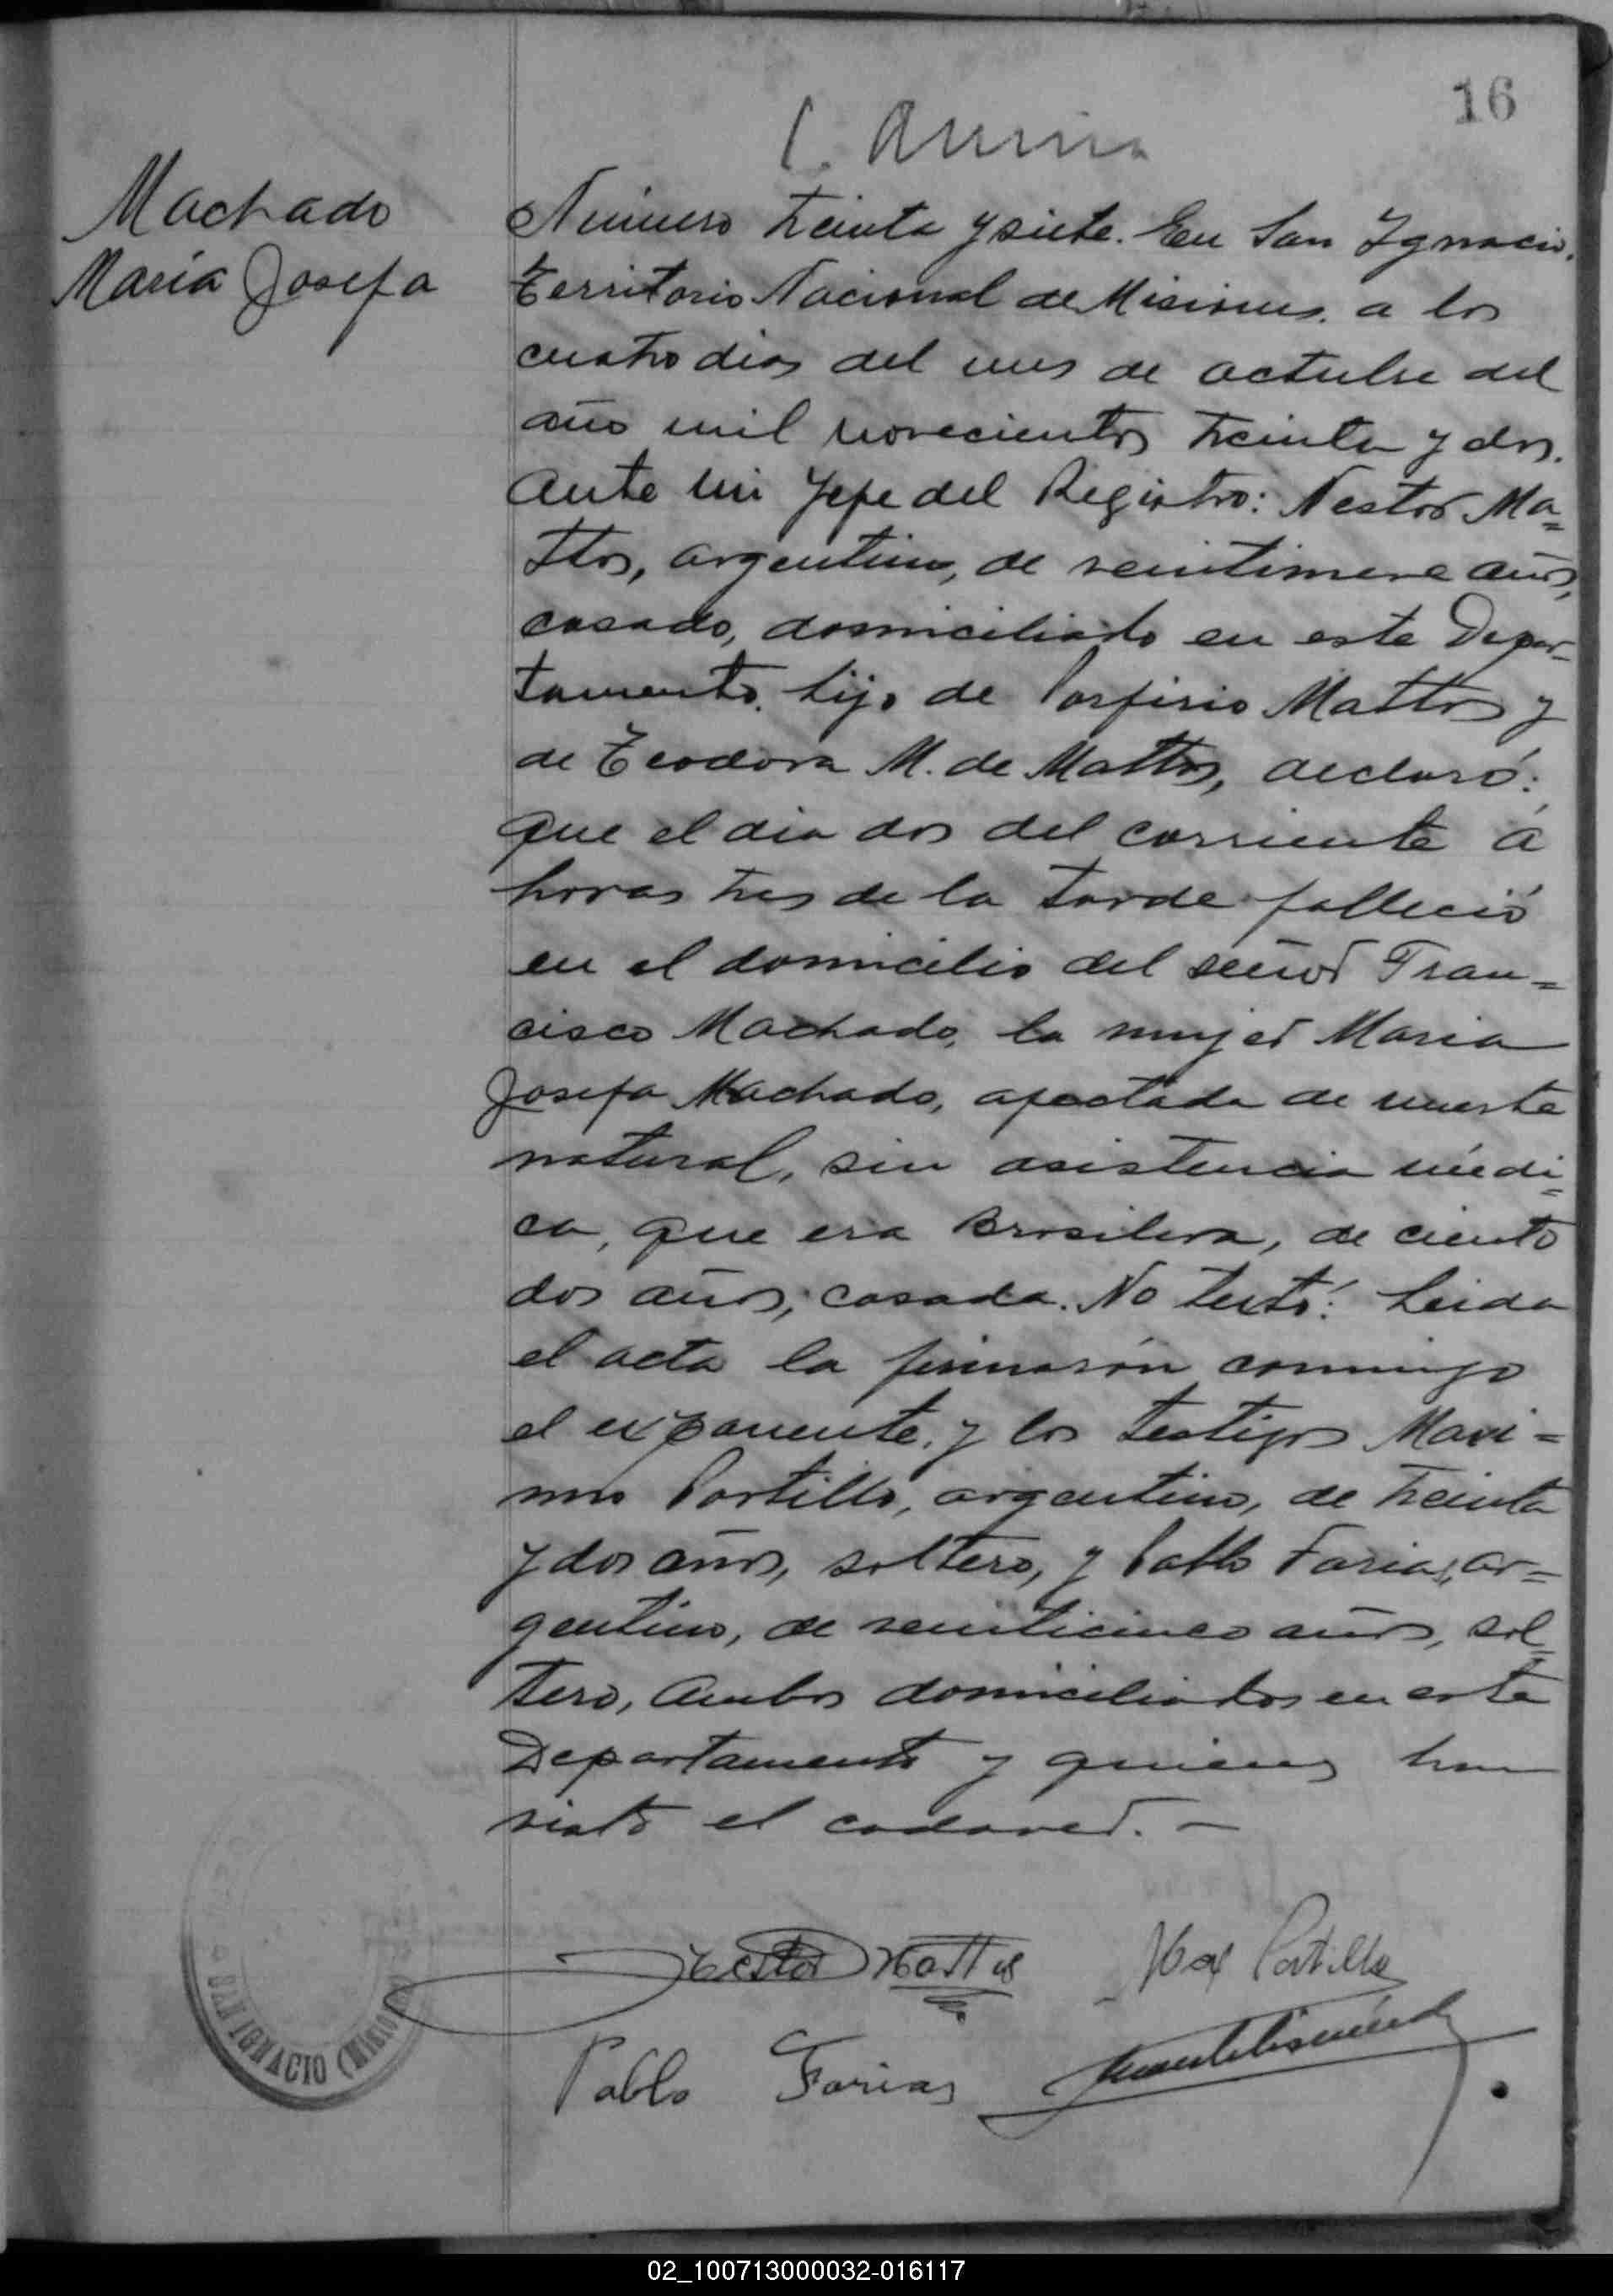 16
Machado
María Josefa
Número treinta y siete. En San Ignacio,
Territorio Nacional de Misiones, a los
cuatro dias del mes de octubre del
año mil novecientos treinta y dos.
Ante mi Jefe del Registro: Nestor Ma=
ttos, argentino, de veintinueve años,
casado, domiciliado en este Depar=
tamento, hijo de Porfirio Mattos y
de Teodora M. de Mattos, declaró:
Que el dia dos del corriente á
horas tres de la tarde falleció
en el domicilio del señor Fran=
cisco Machado, la mujer Maria
Josefa Machado, afectada de muerte
natural, sin asistencia médi=
ca, que era Brasilera, de ciento
dos años, casada. No testó: Leida
el acta la firmarón conmigo
el exponente, y los testigos Maxi=
mo Portillo, argentino, de treinta
y dos años, soltero, y Pablo Farias, ar=
gentino, de veinticinco años, sol=
tero, Ambos domiciliados en este
Departamento y quienes han
visto el cadaver. —
Nestor Mattos Max Portillo
Pablo Farias
SAN IGNACIO (Misio
02_100713000032-016117